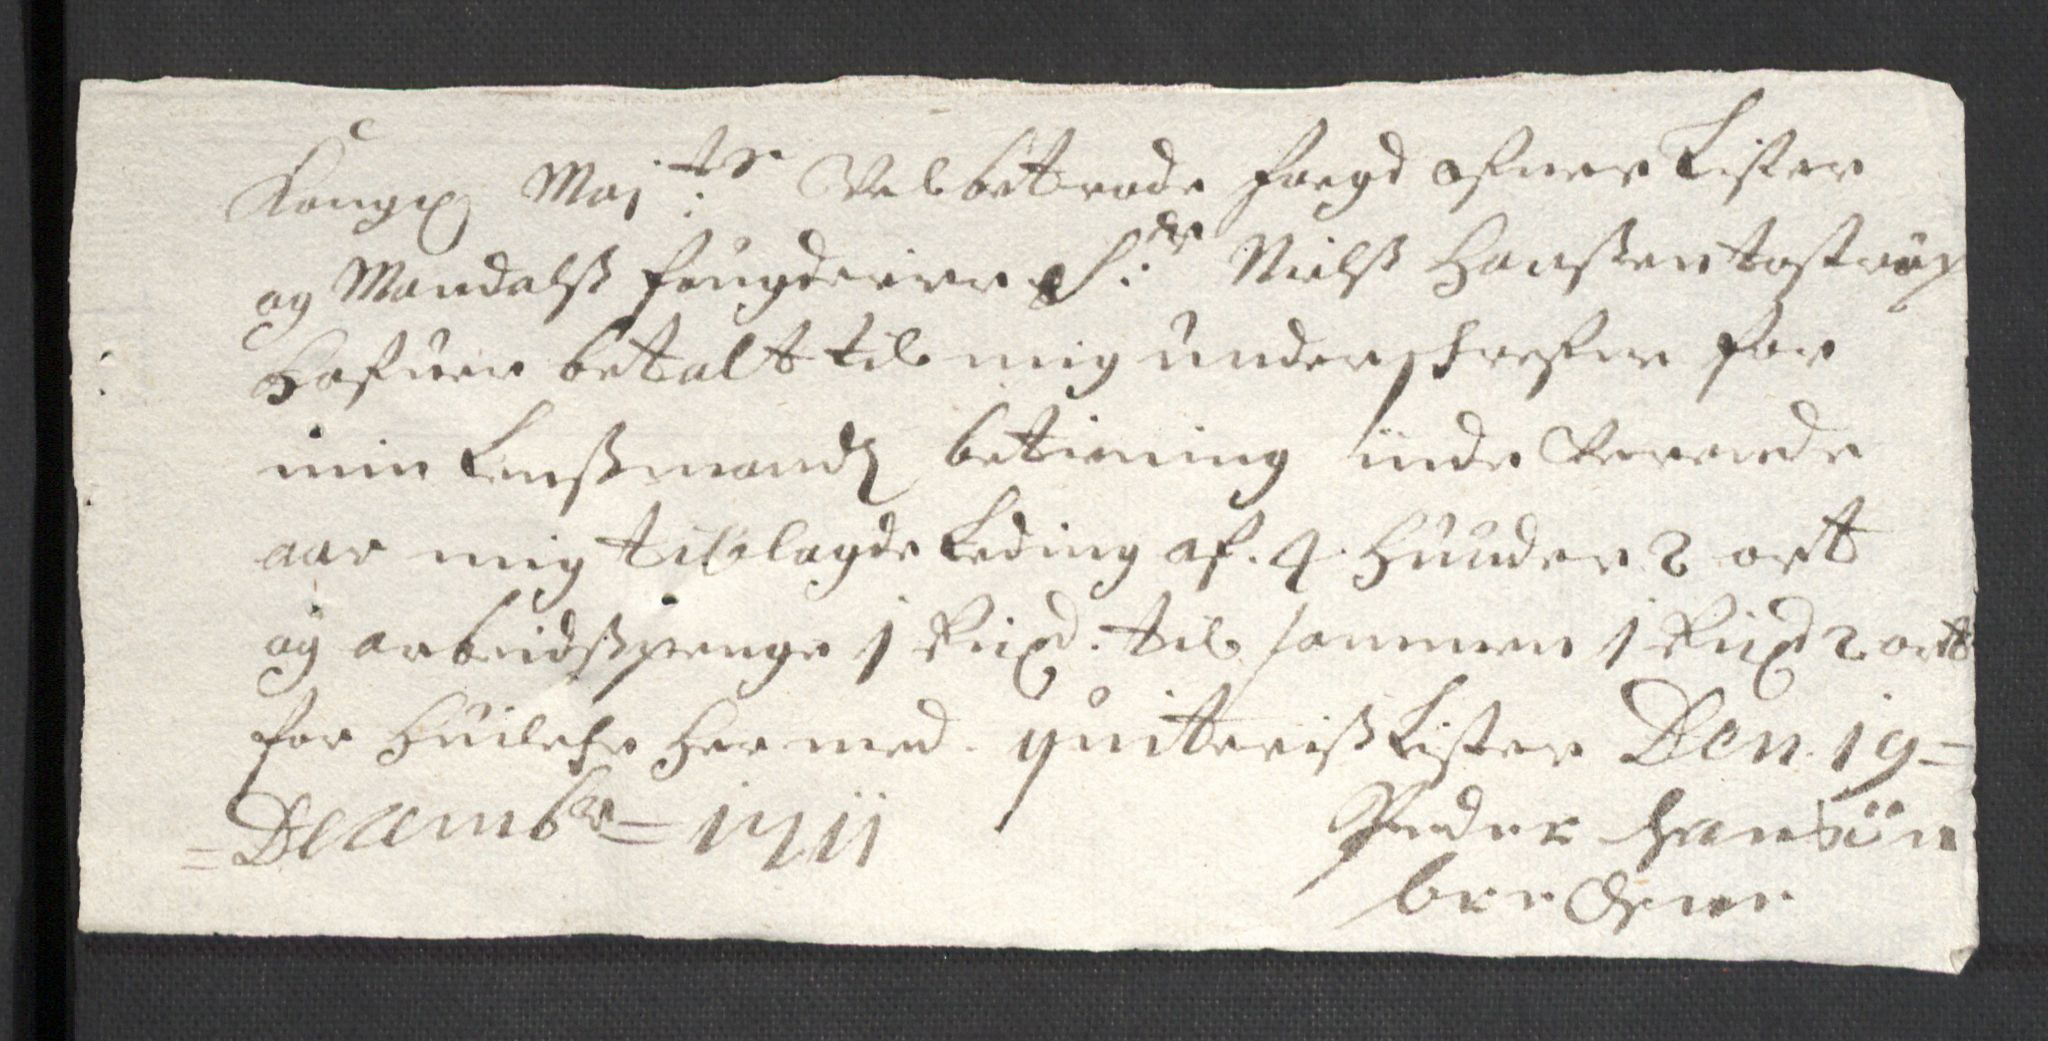 Kongl Maj:ts Velbetrode foegd ofuer Lister
og Mandalß fougderier Sr: Nielß Hanßen tostrup
Hafuer betalt til mig underschrefne for
min Lenßmandß betiening inde Verrende
aar mig tillagde Leding af. 4 Huuder 2 ort
og arbeidßpenge 1 Rixd. til sammen 1 Rixd 2 ort
for Huilche Hermed quitteriß Lister Den 19=
=Decembr= 1711
Peder Hansøn